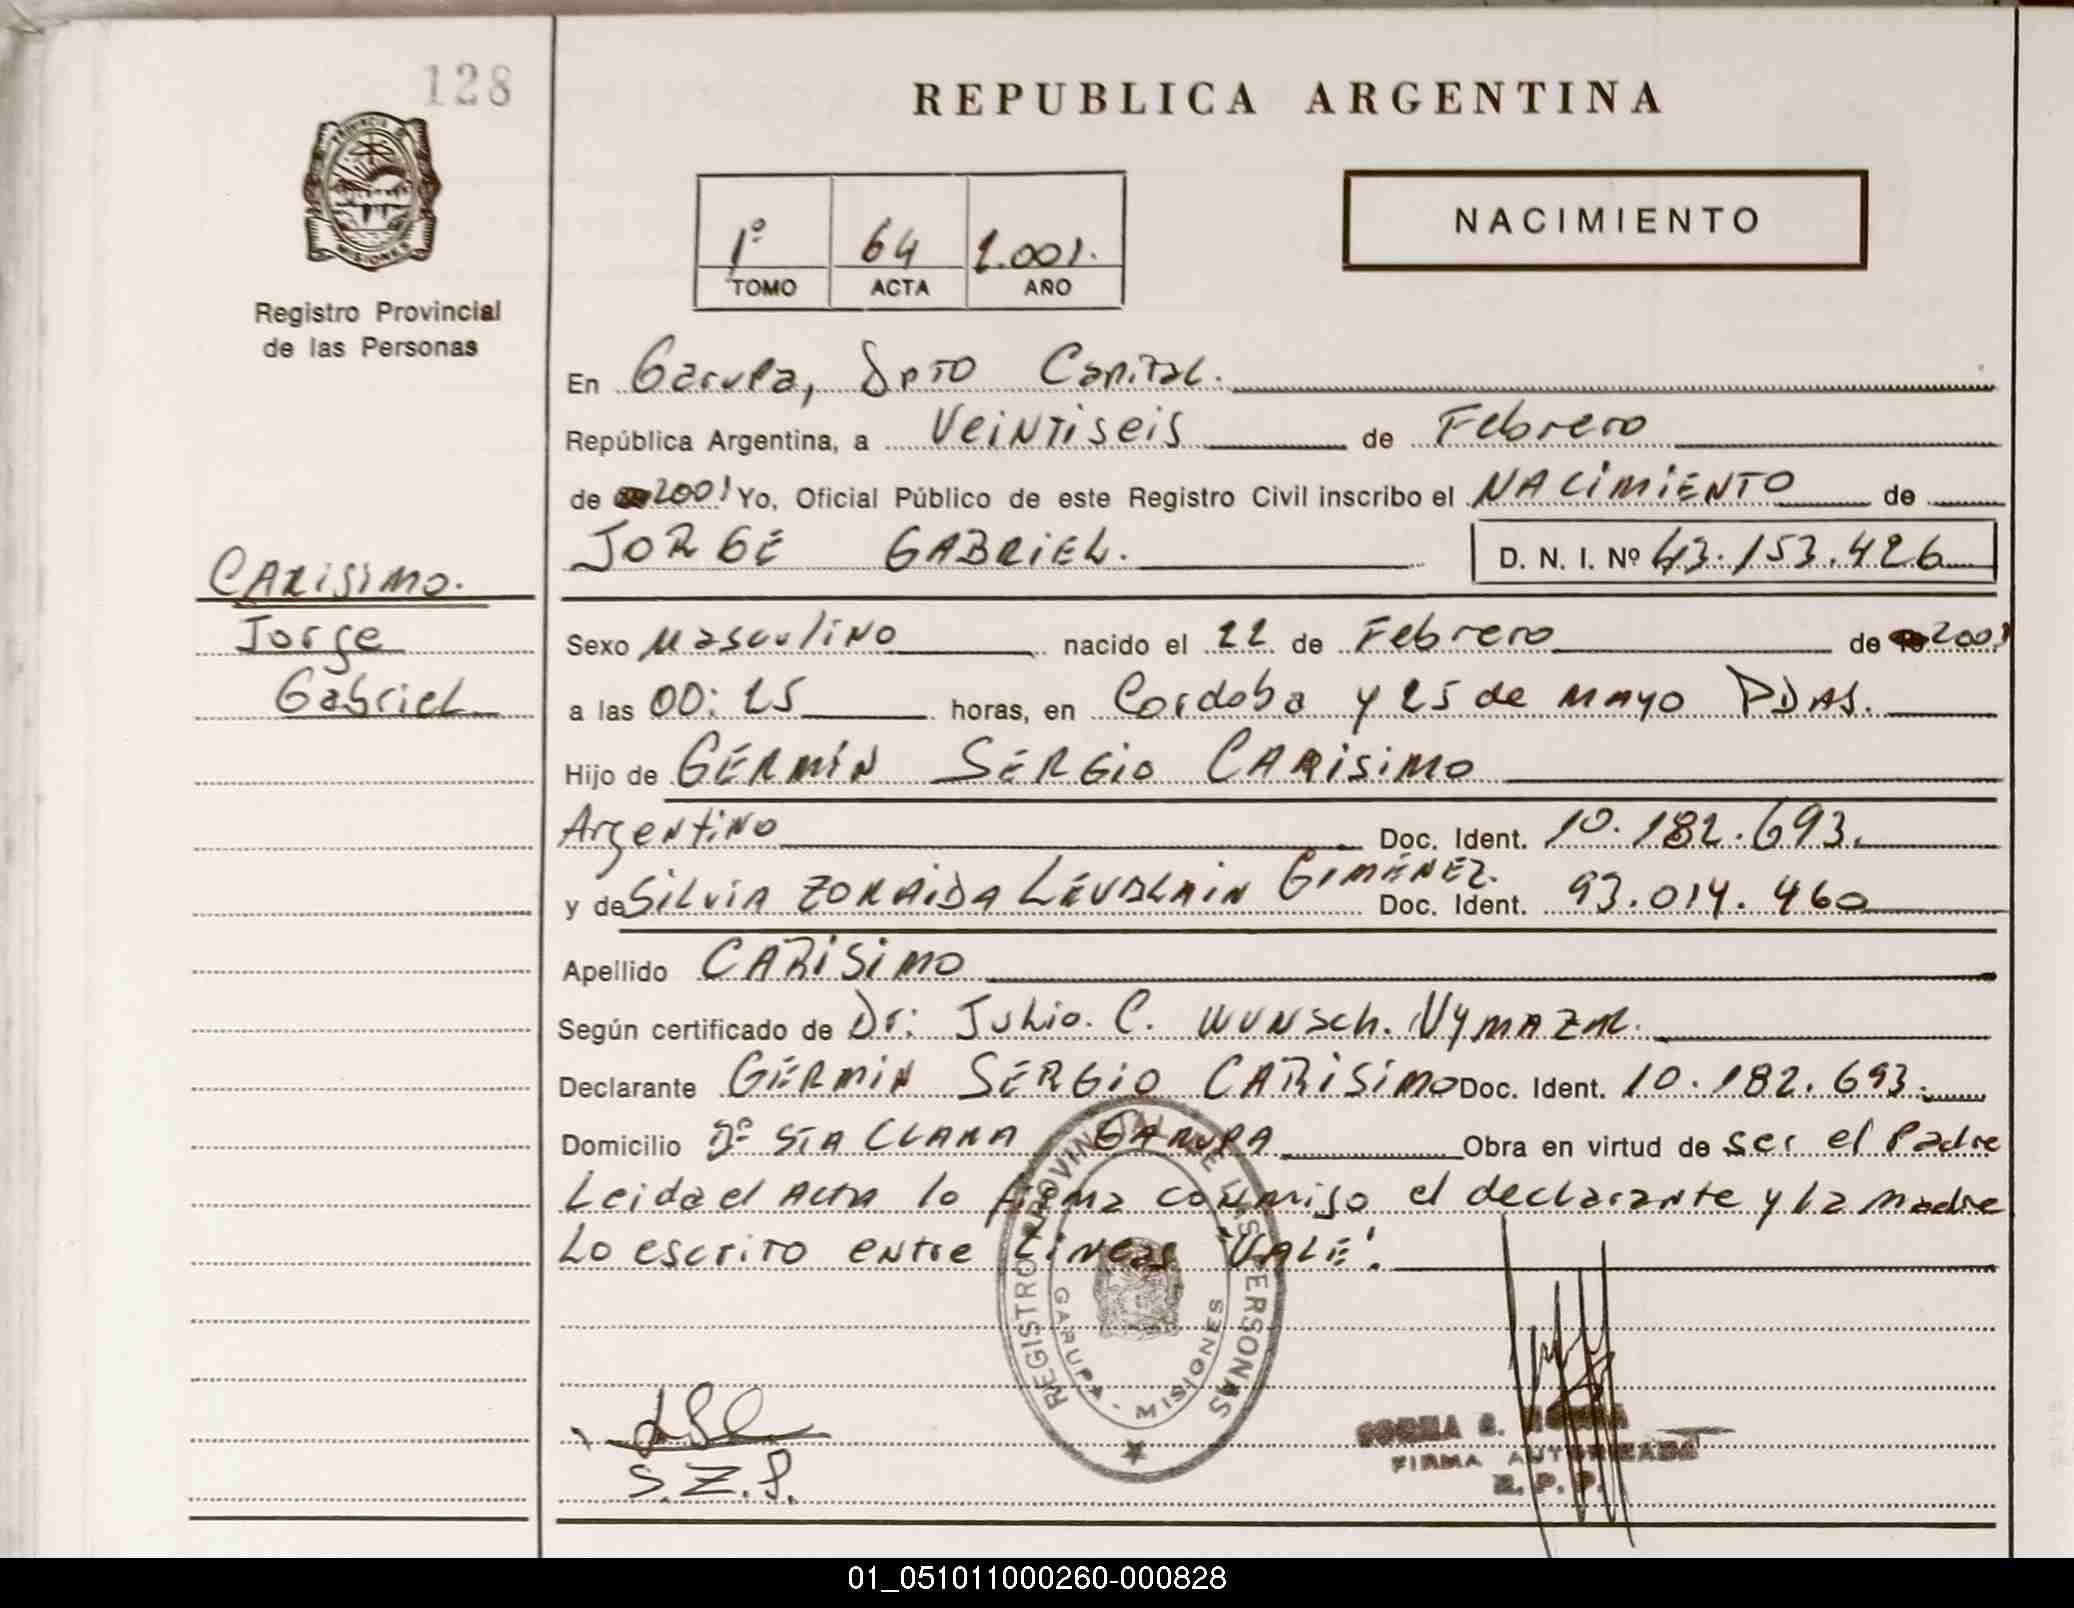 128
REPUBLICA ARGENTINA
PROVINCIA DE
MISIONES
Registro Provincial
de las Personas
1º 64 2.001.
TOMO ACTA AÑO
NACIMIENTO
En Garupa, Dpto Capital.
República Argentina, a Veintiseis de Febrero
de 2001 Yo, Oficial Público de este Registro Civil inscribo el NACIMIENTO de
JORGE GABRIEL. D. N. I. Nº 43.153.426
CARISIMO.
Jorge
Gabriel
Sexo Masculino nacido el 22 de Febrero de 2001
a las 00:25 horas, en Cordoba y 25 de Mayo PDAS.
Hijo de GERMIN SERGIO CARISIMO
Argentino Doc. Ident. 10.182.693.
y de SILVIA ZORAIDA GIMENEZ. Doc. Ident. 93.014.460
Apellido CARISIMO
Según certificado de Dr: Julio. C. WUNSCH. VYMAZAL.
Declarante GERMIN SERGIO CARISIMO Doc. Ident. 10.182.693.
Domicilio Bº STA CLARA GARUPA Obra en virtud de ser el Padre
Leida el Acta lo firma conmigo el declarante y la Madre
Lo escrito entre lineas "VALE".
REGISTRO PROVINCIAL DE LAS PERSONAS
GARUPA - MISIONES
S.Z.G.
FIRMA AUTORIZADA
R.P.P.
01_051011000260-000828